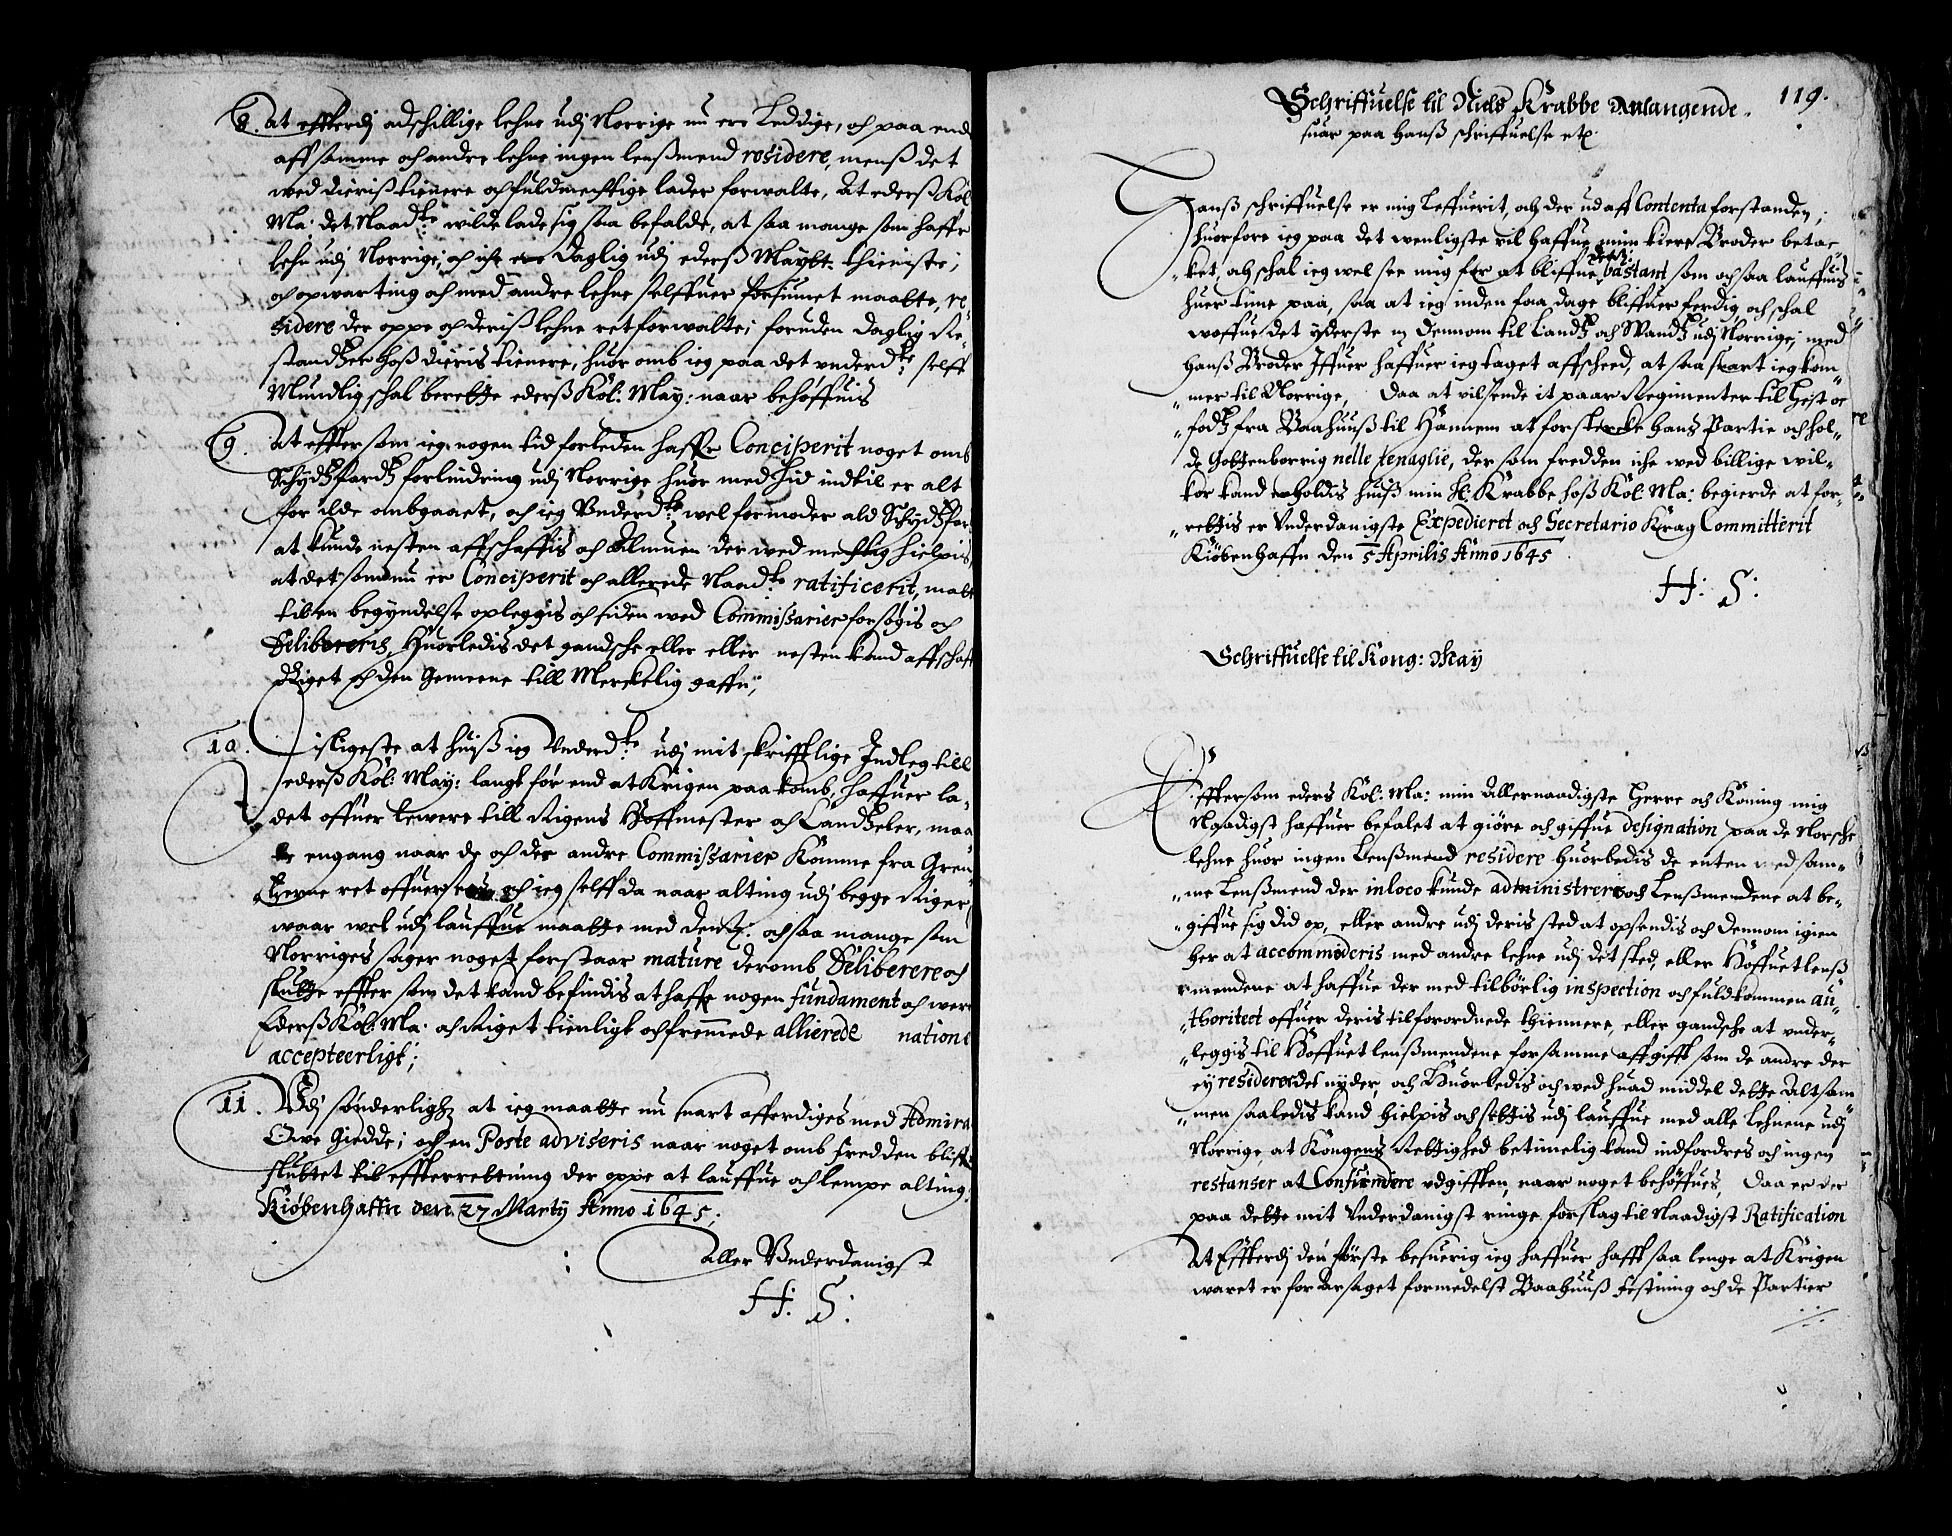 8. At effterdj adschillige lehne udj Norrige nu ere Leddige, och paa end
aff samme och andre lehne ingen lenßmend residere, menß det
wed dieriß tienere och fuldmechtige lader forwalte, At ederß Köl
Ma: det Naad.te wilde lade sig saa befalde, at saa mange som haffr
lehn udj Norrige, och iche ere Daglig udj ederß Maybt: thieniste,
och opwarting och med andre lehne selffuer forsiunet maatte, re-
sidere der oppe och deriß lehne ret forwalte, foruden daglig Re-
standtzer hoß dieris tienere, huor omb ieg paa det underd.te selff
Mundlig schal berette ederß Köl: May: naar behöffuis
9. At effter som ieg nogen tid forleden haffr Conciperit noget omb
Schydtzfardtz forlindring udj Norrige huor med hid indtil er alt
for ilde ombgaaet, och ieg Underd.te wel formoder ald Schydtzfar
at kunde nesten affschaffis och Almuen der wed mechtig hielpis,
at det som nu er Conciperit och allerede Naad.te ratificerit, maat
til en begyndelse opleggis och siden wed Commissarier forsøgis och
Delibereris, Huorledis det gandsche eller eller nesten kand affschaff
Riget och den Gemeene till Merckelig gaffn,
10. Disligeste at huiß ieg Underd.te udj mit skrifftlige Indleg till
ederß Köl: May: langt før end at Krigen paa komb, haffuer la-
det offuer lewere till Rigens Hoffmester och Candtzeler, maa
te engang naar de och der andre Commissarier komme fra Gren-
tzerne ret offuersees och ieg selff da naar alting udj begge Riger
waar wel udj lauffue maatte med dennem. och saa mange som
Norriges sager noget forstaar mature deromb Deliberere och
slutte effter som det kand befindis at haffe nogen fundament och were
Ederß Köl: Ma: och Riget tienligt och fremmede allierede natione
accepteerligt;
11. Udj sønderlighed at ieg maatte nu snart afferdiges med Admira
Owe Giedde; och en Poste adviseris naar noget omb fredden bliffr
sluttet til effterretning der oppe at lauffue och lempe alting.
Kiøbenhaffn den 27 Martij Anno 1645;
Aller Underdanigst
H: S:
119.
Schriffuelse til Niels Krabbe Anlangende.
suar paa hanß schriffuelse etc.
Hanß schriffuelse er mig leffuerit, och der ud aff Contenta forstanden,
huorfore ieg paa det wenligste vil haffue min kiere Broder betac
ket, och schal ieg wel see mig for at bliffue bastant som och saa lauffuis
huer time paa, saa at ieg inden faa dage bliffuer ferdig, och schal
woffue det yderste m dennom til Landtz och Wandtz udj Norrige, med
hanß Broder Iffuer haffuer ieg taget affscheed, at saa snart ieg kom-
mer til Norrige, Daa at vilsende it paar Regimenter til Hest oc
fodtz fra Baahuuß til Hannem at forstercke hans Partie och hol-
de Gottenborrig nelle tenaglie, der som fredden iche wed billige wil-
kor kand erholdis huiß min H: Krabbe hoß Köl: Ma: begierde at for-
rettis er Underdanigste Expedieret och Secretario Krag Committerit
Kiöbenhaffn den 5 Aprilis Anno 1645
H: S:
Schriffuelse til Kong: May
Effterssom eders Köl: Ma: min Allernaadigste Herre och Köning mig
Naadigst haffuer befalet at giöre och giffue designation paa de Norsche
lehne huor ingen Lenßmend residere huorledis de enten med sam-
me Lenßmend der in loco kunde administreris och Lenßmendene at be-
giffue sig did op, eller andre udj deris sted at opsendis och dennom igien
her at accommoderis med andre lehne udj det sted, eller Höffuetlenß
mendene at haffue der med tilbörlig inspection och fuldkommen au-
thoritet offuer deris tilforordnede thiennere, eller gandsche at under-
leggis til Höffuetlenßmendene for samme affgifft som de andre der
ey residere det nyder, och Huorledis och wed huad middel dette Altsam-
men saaledis kand hielpis och settis udj lauffue med alle Lehnene udj
Norrige, at Köngens Rettighed betimelig kand indfordres och ingen
restanser at Confundere udgifften, naar noget behöffues, Daa er der
paa dette mit Underdanigst ringe forslag til Naadigst Ratification
At Effterdj den förste besuerig ieg haffuer hafft saa lenge at Krigen
waret er foraarsaget formedelst Baahuuß Festning och de Partier